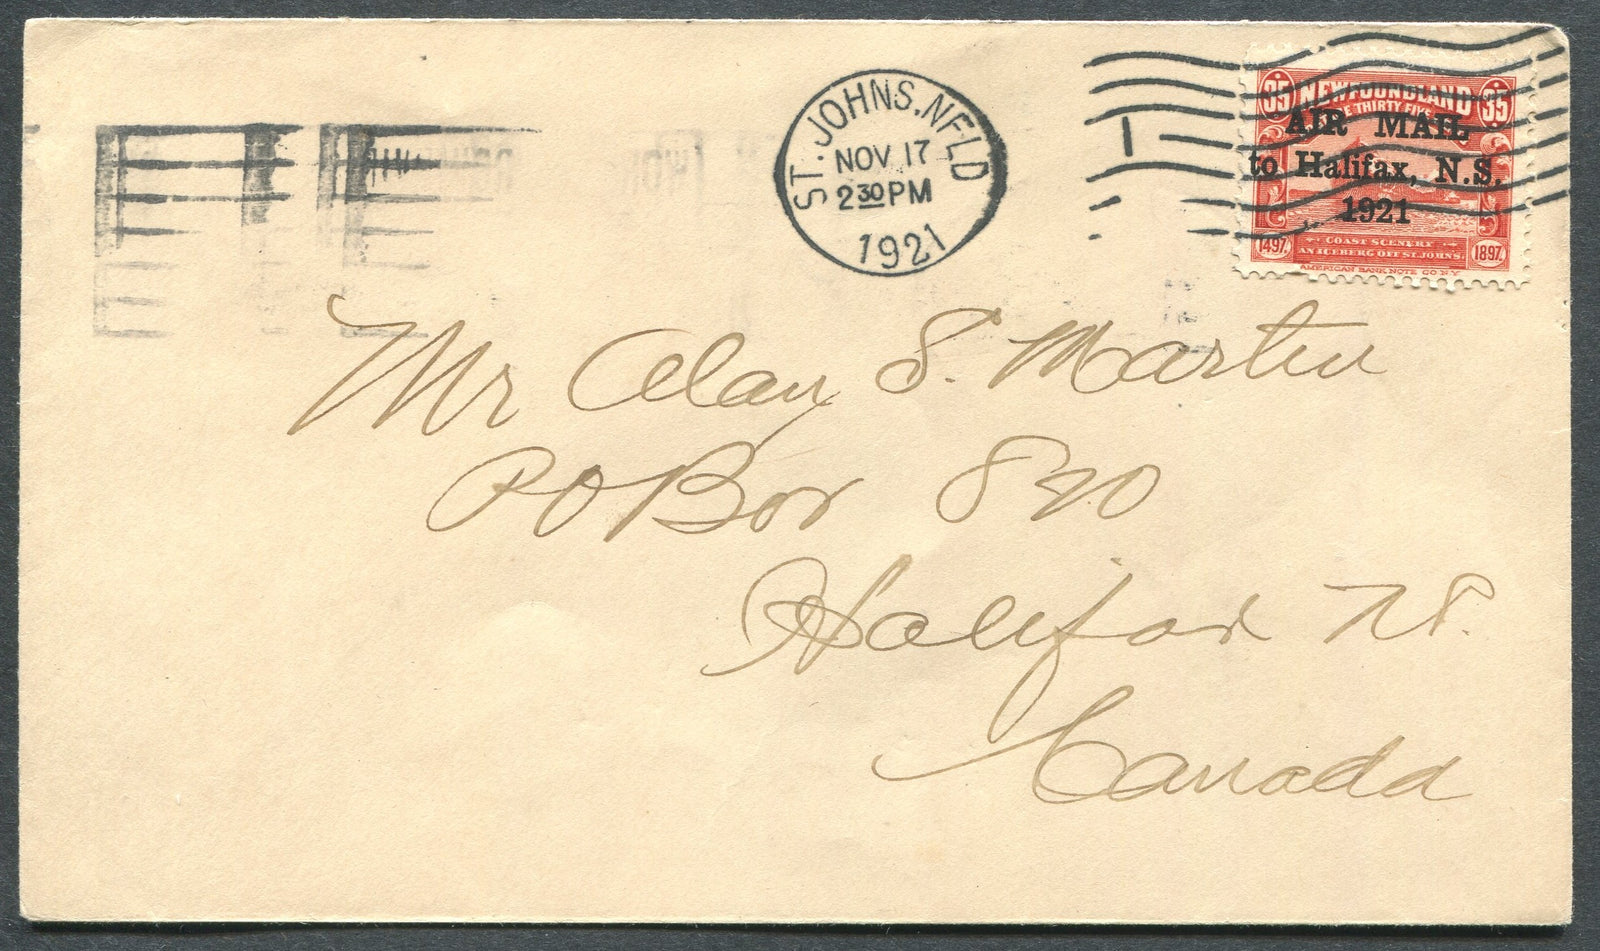 ST. JOHNS. NFLD
NOV 17
2 30 PM
1921
1
35 NEWFOUNDLAND 35
THIRTY FIVE
AIR MAIL
to Halifax, N.S.
1921
COAST SCENERY
1497. AN ICEBERG OFF ST. JOHNS. 1897.
AMERICAN BANK NOTE CO. N.Y.
Mr Alan S. Martin
P O Box 820
Halifax N S.
Canada